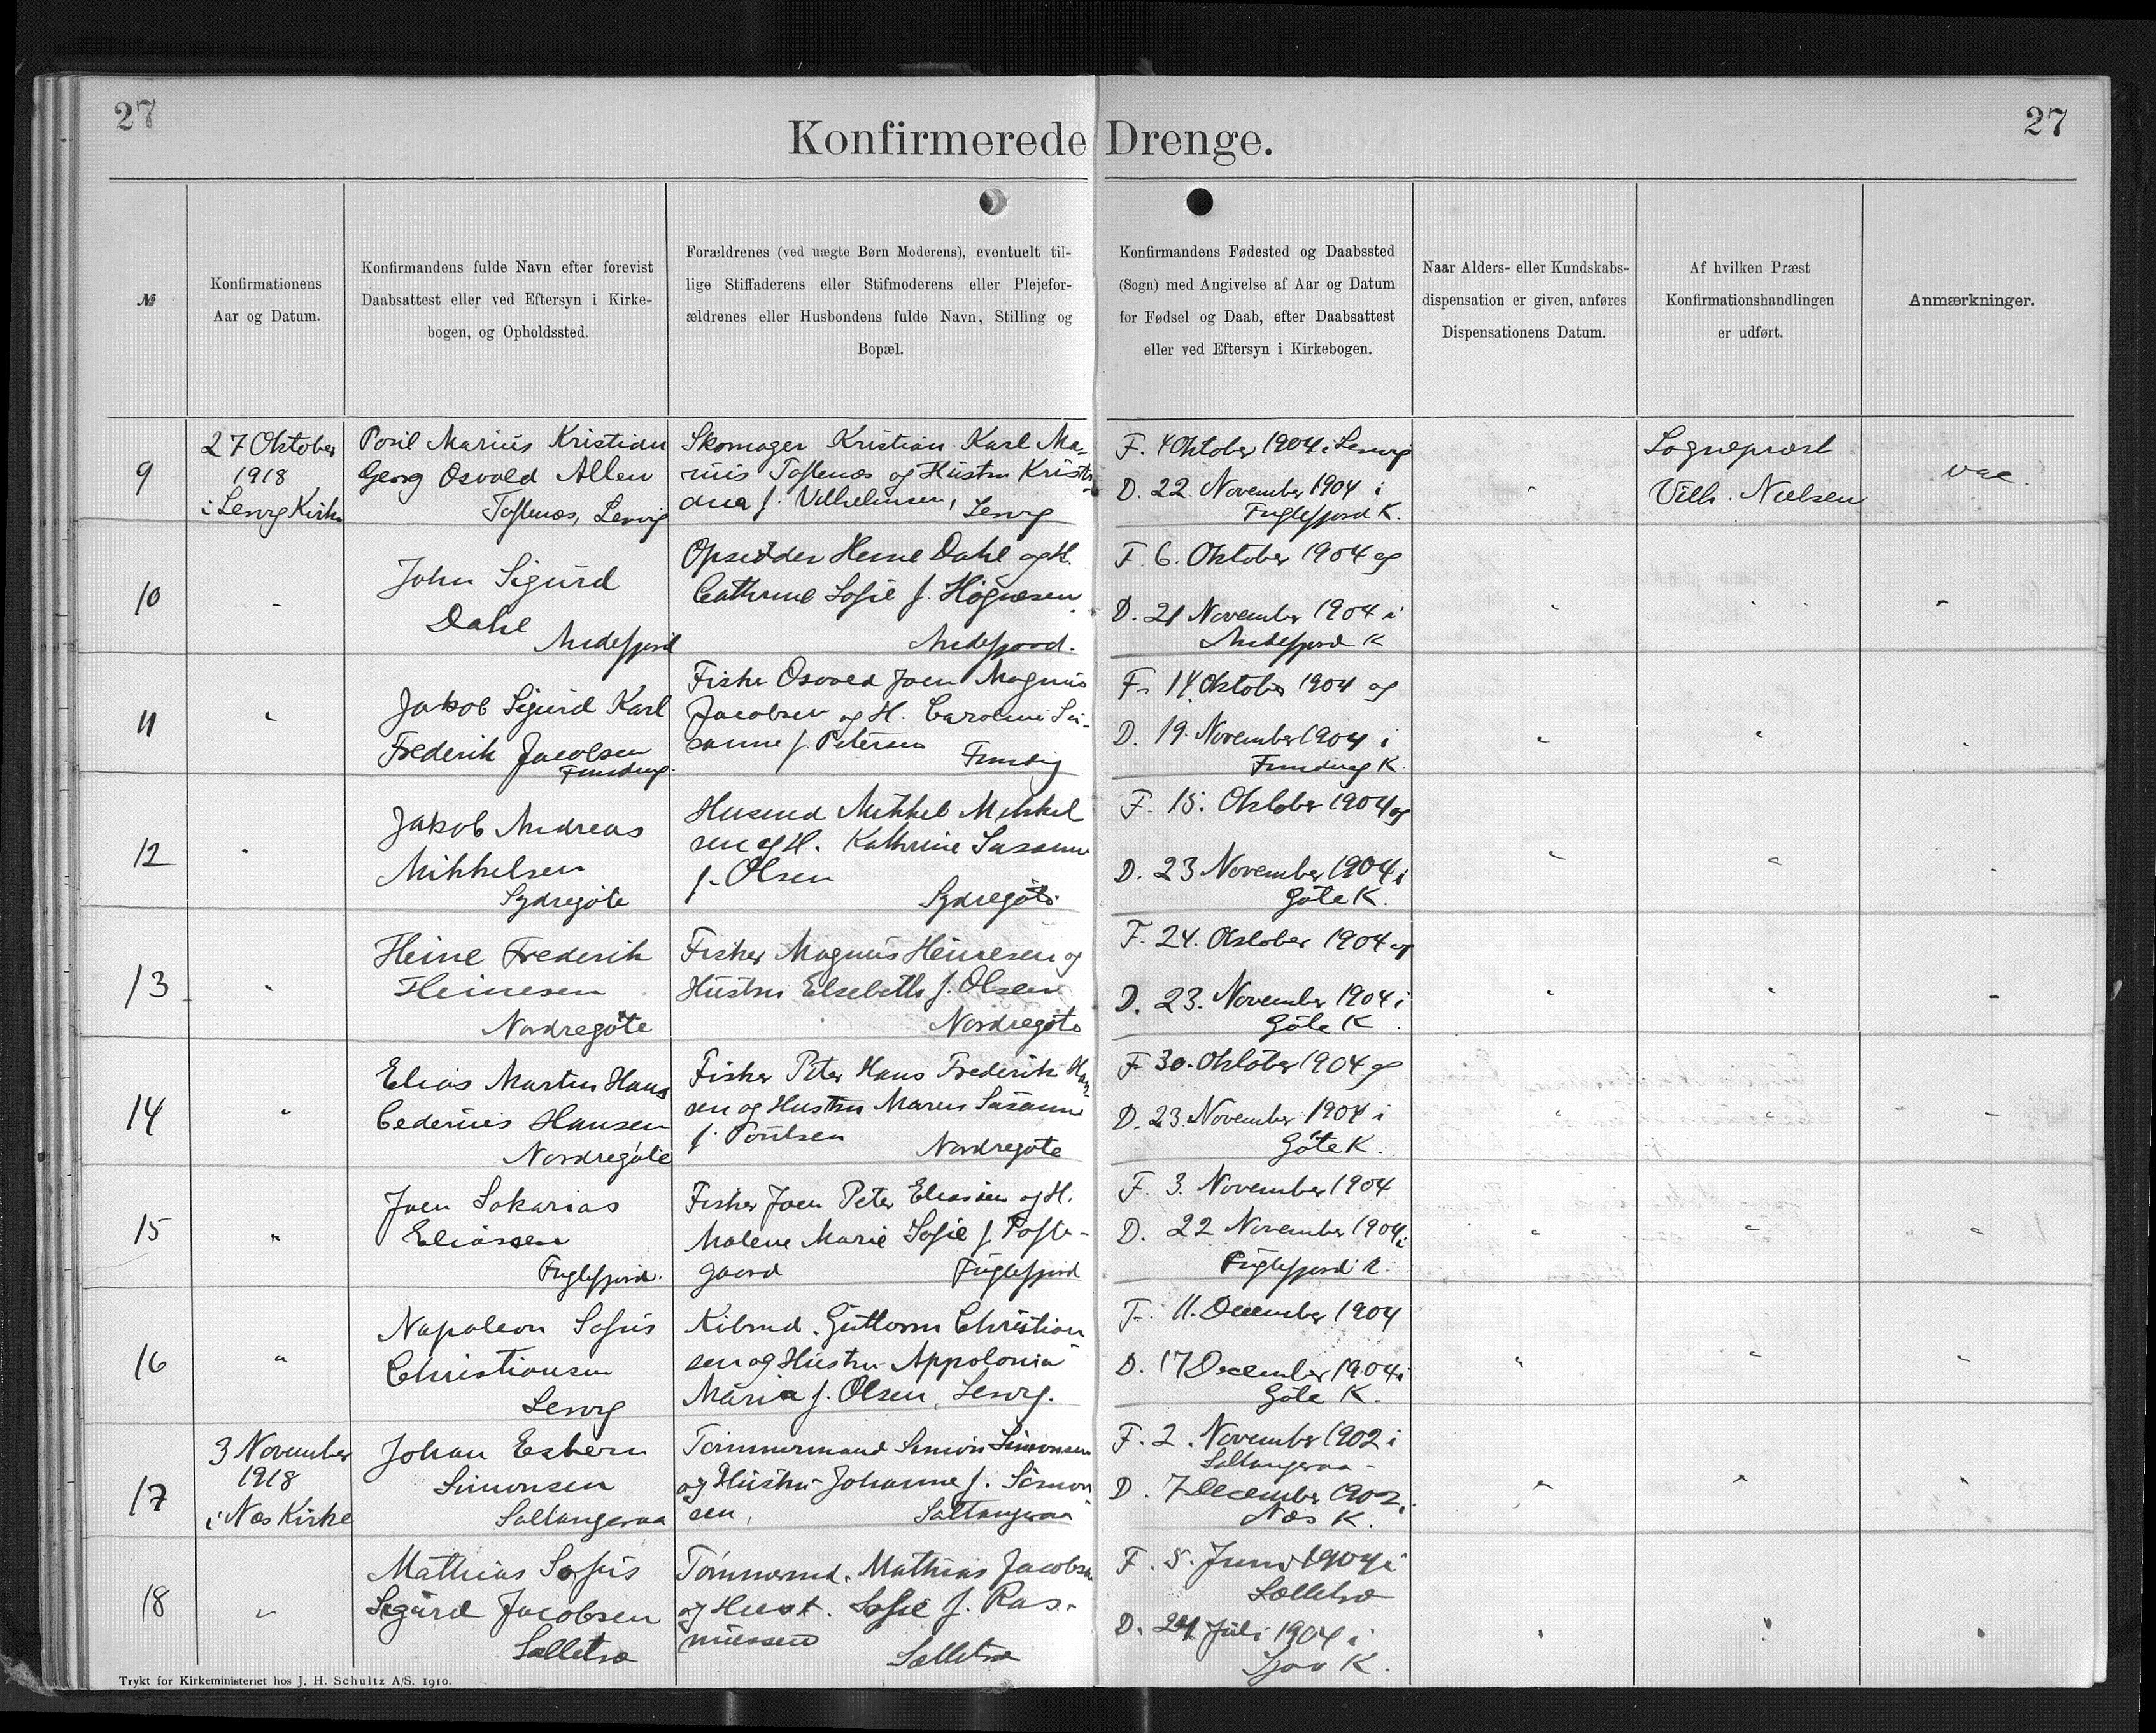 27
27
Konfirmerede Drenge.
№
Konfirmationens
Aar og Datum.
Konfirmandens fulde Navn efter forevist
Daabsattest eller ved Eftersyn i Kirke-
bogen, og Opholdssted.
Forældrenes (ved uægte Børn Moderens), eventuelt til-
lige Stiffaderens eller Stifmoderens eller Plejefor-
ældrenes eller Husbondens fulde Navn, Stilling og
Bopæl.
Konfirmandens Fødested og Daabssted
(Sogn) med Angivelse af Aar og Datum
for Fødsel og Daab, efter Daabsattest
eller ved Eftersyn i Kirkebogen.
Naar Alders- eller Kundskabs-
dispensation er given, anføres
Dispensationens Datum.
Af hvilken Præst
Konfirmationshandlingen
er udført.
Anmærkninger.
9
27 Oktober
1918
i Lervig Kirke
Poul Marius Kristian
Georg Osvald Allen
Toftenæs, Lervig
Skomager Kristian Karl Ma-
rius Toftenæs og Hustru Kristi-
ana f. Vilhelmsen, Lervig
F. 4 Oktober 1904 i Lervig
D. 22. November 1904 i
Fuglefjord K.
"
Sognepræst
Vilh. Nielsen
vac.
10
"
John Sigurd
Dahl
Andefjord
Opsidder Heine Dahl og H.
Cathrine Sofie f. Högnesen
Andefjord.
F. 6. Oktober 1904 og
D. 21 November 1904 i
Andefjord K
11
"
Jakob Sigurd Karl
Frederik Jacobsen
Funding
Fisker Osvald Joen Magnus
Jacobsen og H. Caroline Su-
sanne f. Petersen
Funding
F. 14 Oktober 1904 og
D. 19. November 1904 i
Funding K
12
"
Jakob Andreas
Mikkelsen
Sydregöte
Husmd. Mikkel Mikkel
sen og H. Kathrine Susanne
f. Olsen
Sydregöte
F. 15. Oktober 1904 og
D. 23 November 1904 i
Göte K.
13
"
Heine Frederik
Heinesen
Nordregöte
Fisker Magnus Heinesen og
Hustru Elsebeth f. Olsen
Nordregöte
F. 24. Oktober 1904 og
D. 23. November 1904 i
Göte K
14
"
Elias Martin Hans
Cedenius Hansen
Nordregöte
Fisker Peter Hans Frederik Han
sen og Hustru Maren Susanne
f. Poulsen
Nordregöte
F. 30. Oktober 1904 og
D. 23. November 1904 i
Göte K.
15
"
Joen Sakarias
Eliasen
Fuglefjord.
Fisker Joen Peter Eliasen og H.
Malene Marie Sofie f. Tofte-
gaard
Fuglefjord
F. 3. November 1904
D. 22 November 1904 i
Fuglefjord K.
16
"
Napoleon Sofus
Christiansen
Lervig
Kibmd. Guttorm Christian
sen og Hustru Appolonia
Maria f. Olsen, Lervig.
F. 11. December 1904
D. 17 December 1904 i
Göte K.
17
3 November
1918
i Næs Kirke
Johan Esbern
Simonsen
Saltangeraa
Tömmermand Simon Simonsen
og Hustru Johanne f. Simon
sen,
Saltangeraa
F. 2. November 1902 i
Saltangeraa
D. 7 December 1902 i
Næs K.
18
"
Mathias Sofus
Sigurd Jacobsen
Selletræ
Tömmermd. Mathias Jacobsen
og Hust. Sofie f. Ras-
mussen
Selletræ
F. 5. Juni 1904 i
Selletræ
D. 24 Juli 1904 i
Sjov K.
Trykt for Kirkeministeriet hos J. H. Schultz A/S. 1910.